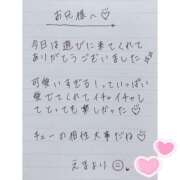 お兄様へ♡
今日は遊びに来てくれて
ありがとうございました
可愛いすぎる！っていっぱい
愛せてくれてイチャイチャして
とっても楽しかった♡
チューの相性大事だね♡
えまより